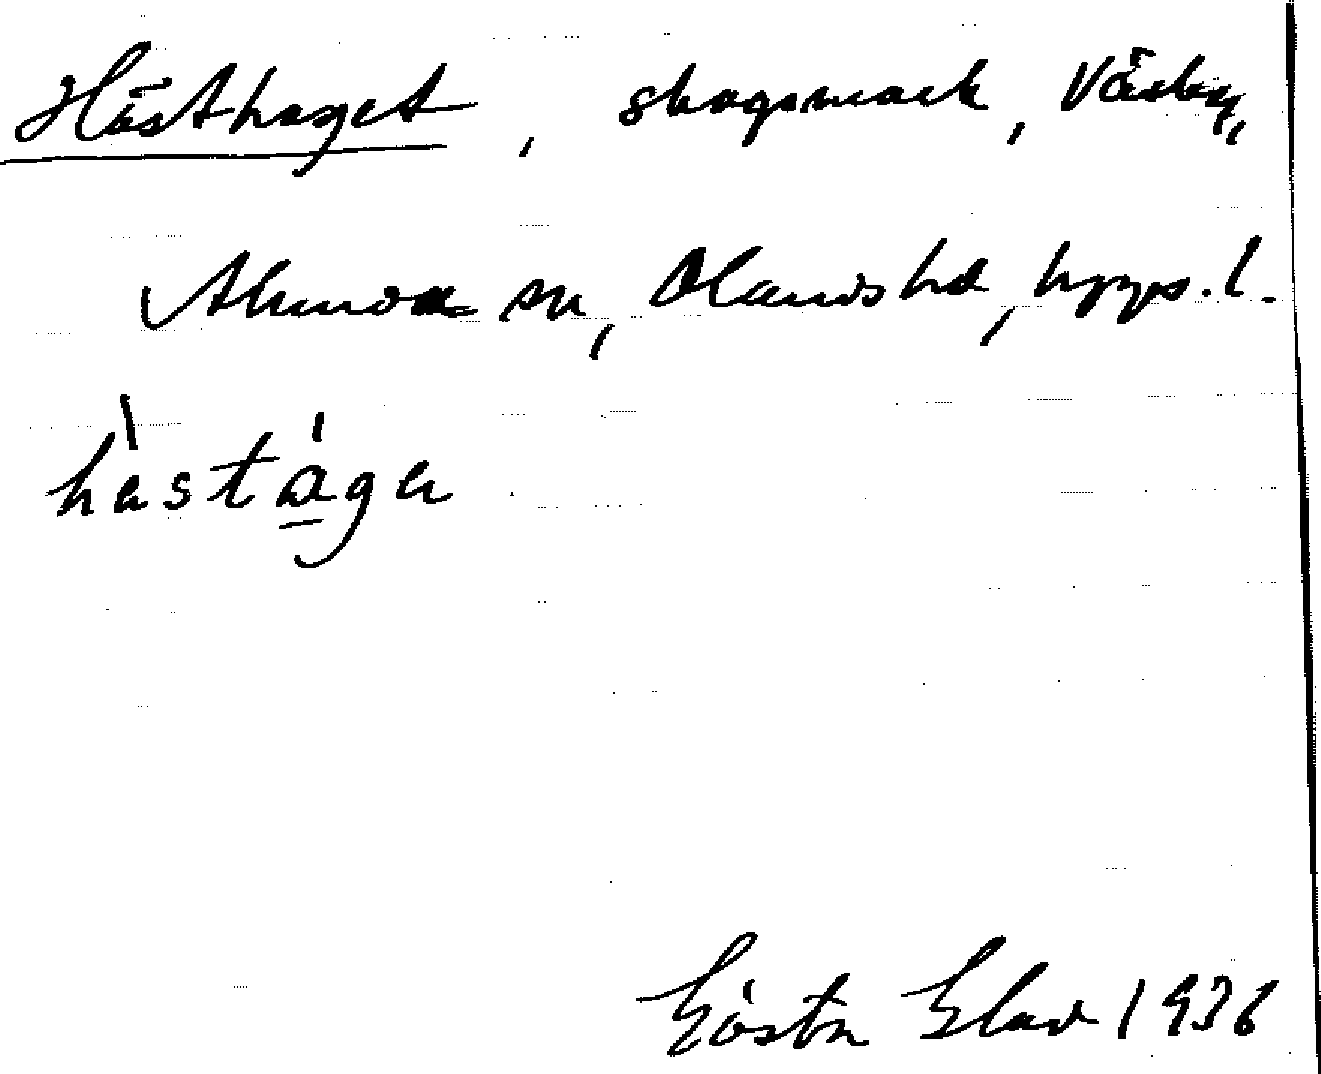 Hästhaget, skogsmark, Väsby,
Almunge sn, Olands hd, Upps. l.
hästága
Gösta Elav 1936